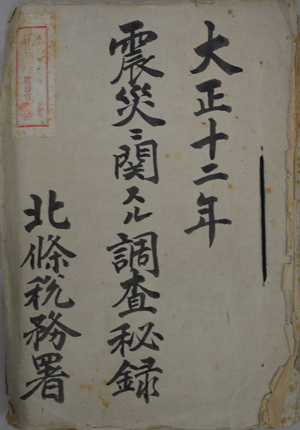 大正十二年
震災ニ関スル調査秘録
北條税務署